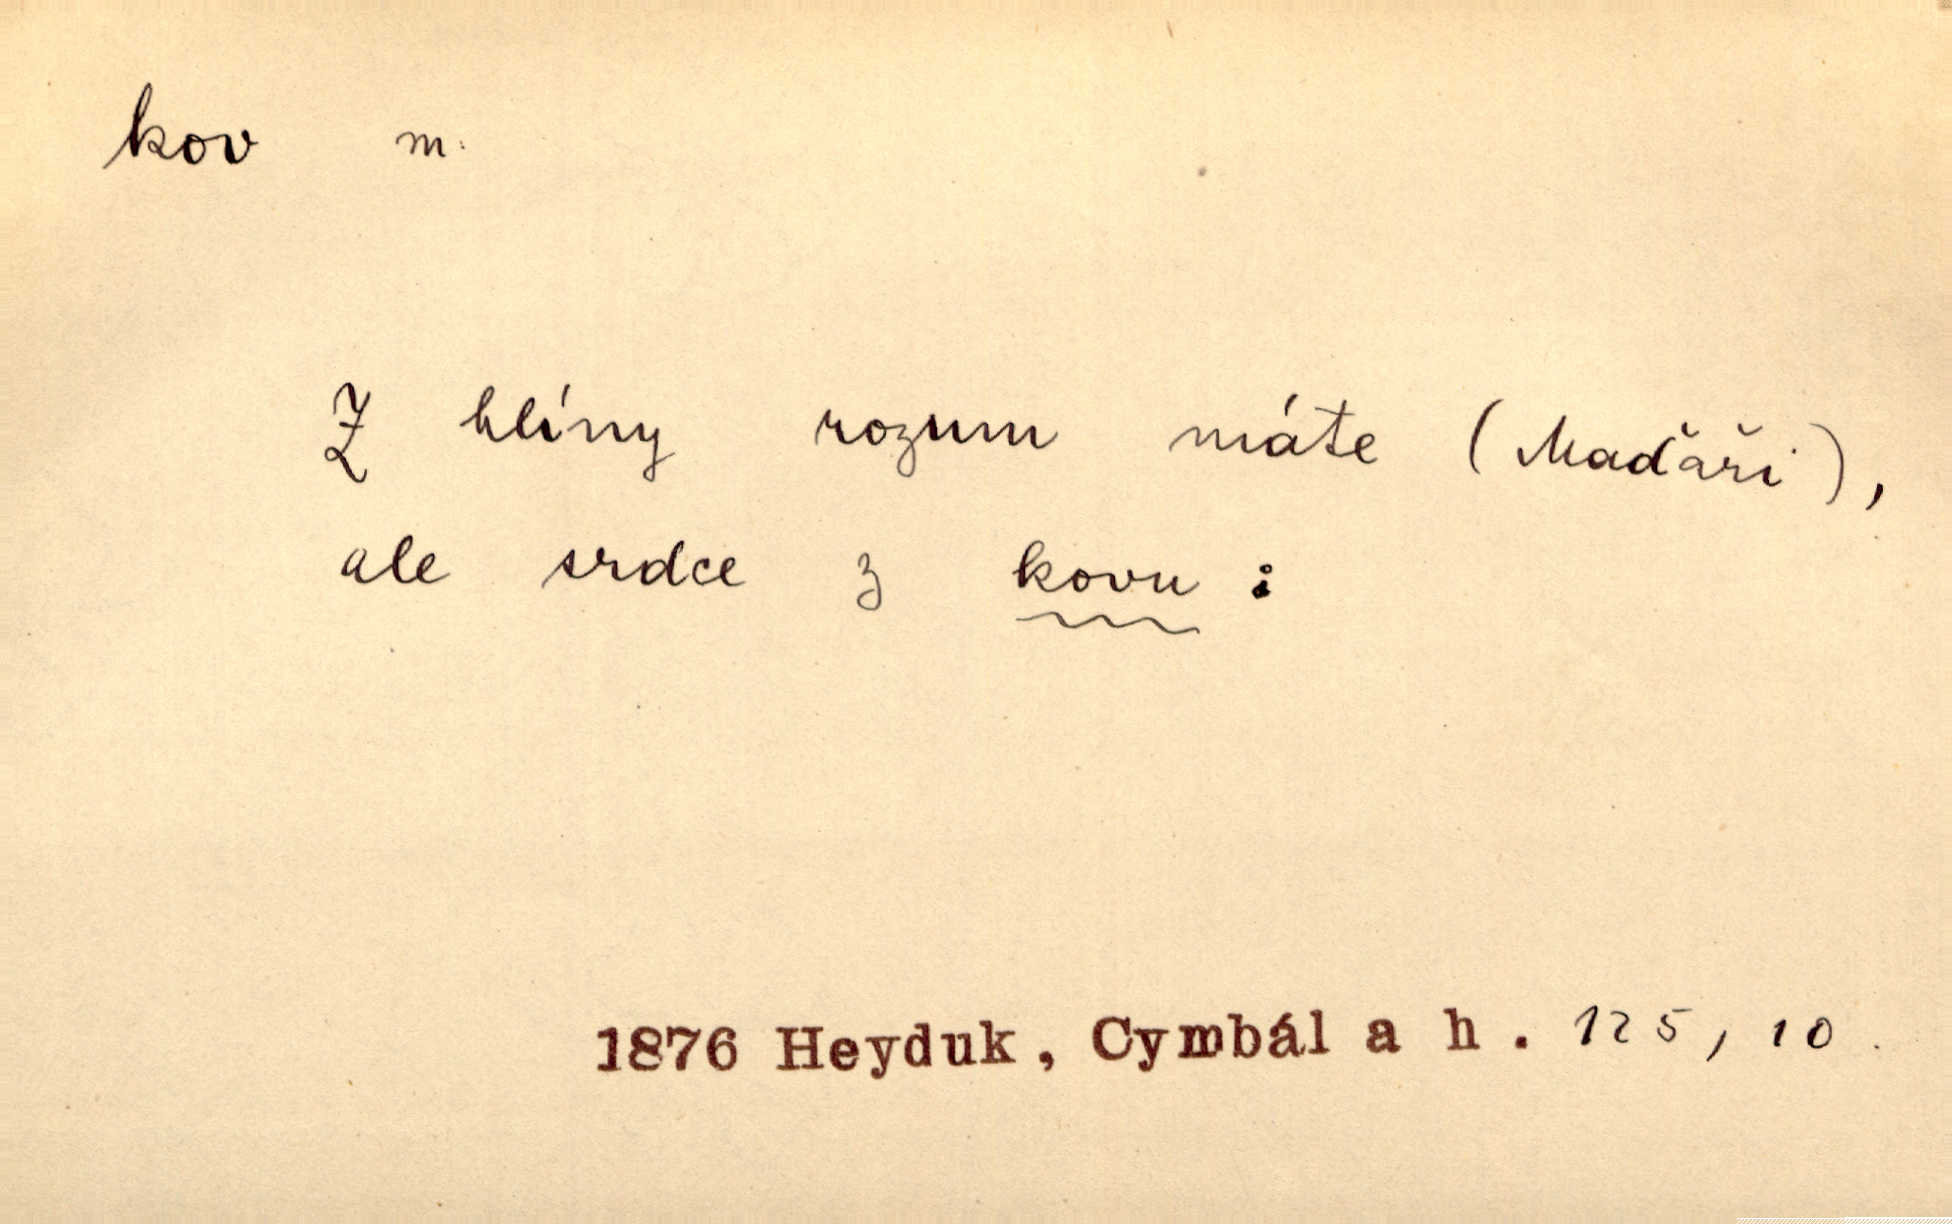 kov m.
Z hlíny rozum máte (Maďaři),
ale srdce z kovu :
1876 Heyduk, Cymbál a h. 125, 10.